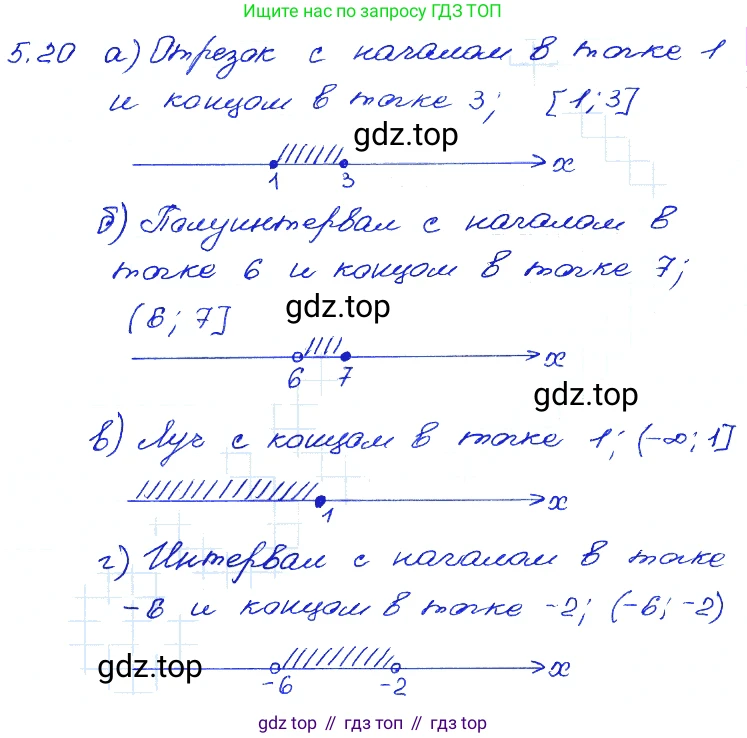 Ищите нас по запросу ГДЗ ТОП
5.20 а) Отрезок с началом в точке 1
и концом в точке 3; [1; 3]
gdz.top
1 3 x
б) Полуинтервал с началом в
точке 6 и концом в точке 7;
(6; 7]
gdz.top
6 7 x
gdz.top
в) Луч с концом в точке 1; (-∞; 1]
1 x
г) Интервал с началом в точке
-6 и концом в точке -2; (-6; -2)
gdz.top
-6 -2 x
gdz top // гдз топ // gdz.top